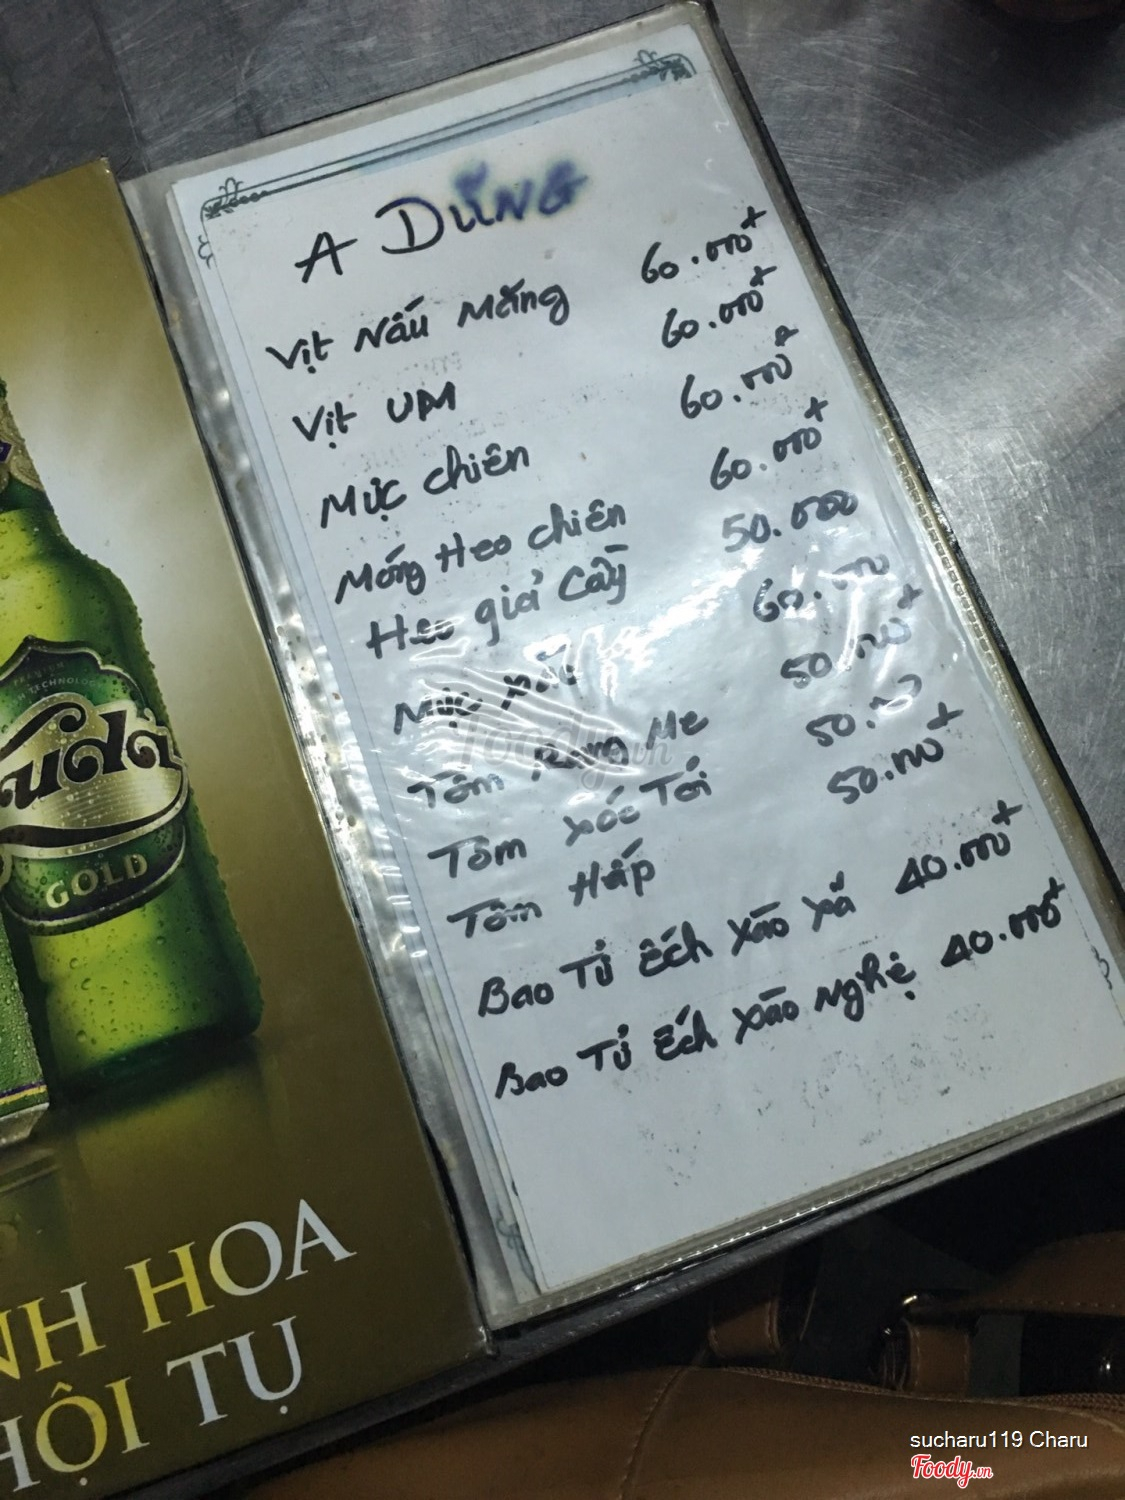 A DŨNG
Vịt Nấu Măng 60.000đ
Vịt UM 60.000đ
Mực chiên 60.000đ
Móng Heo chiên 60.000đ
Heo giả Cầy 50.000
Mực xào 60.000
Tôm Rang Me 50.000đ
Tôm xóc Tỏi 50.000
Tôm Hấp 50.000đ
Bao Tử Ếch xào xả 40.000đ
Bao Tử Ếch xào Nghệ 40.000đ
PREMIUM
GOLD
HOA
TỤ
Foody.vn
sucharu119 Charu
Foody.vn